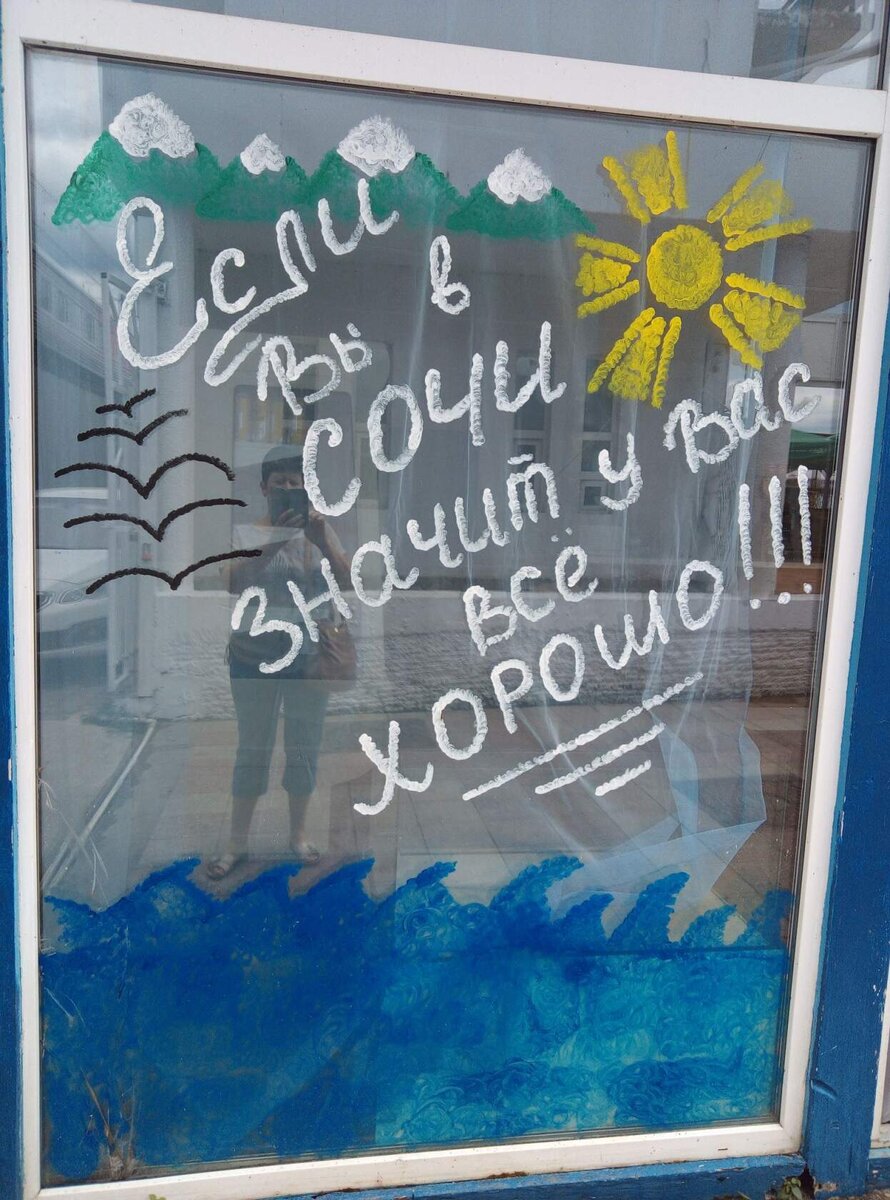 Если
вы в
СОЧИ
значит у вас
всё
хорошо!!!